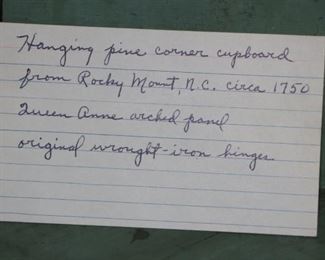 Hanging pine corner cupboard
from Rocky Mount, N.C. circa 1750
Queen Anne arched panel
original wrought-iron hinges